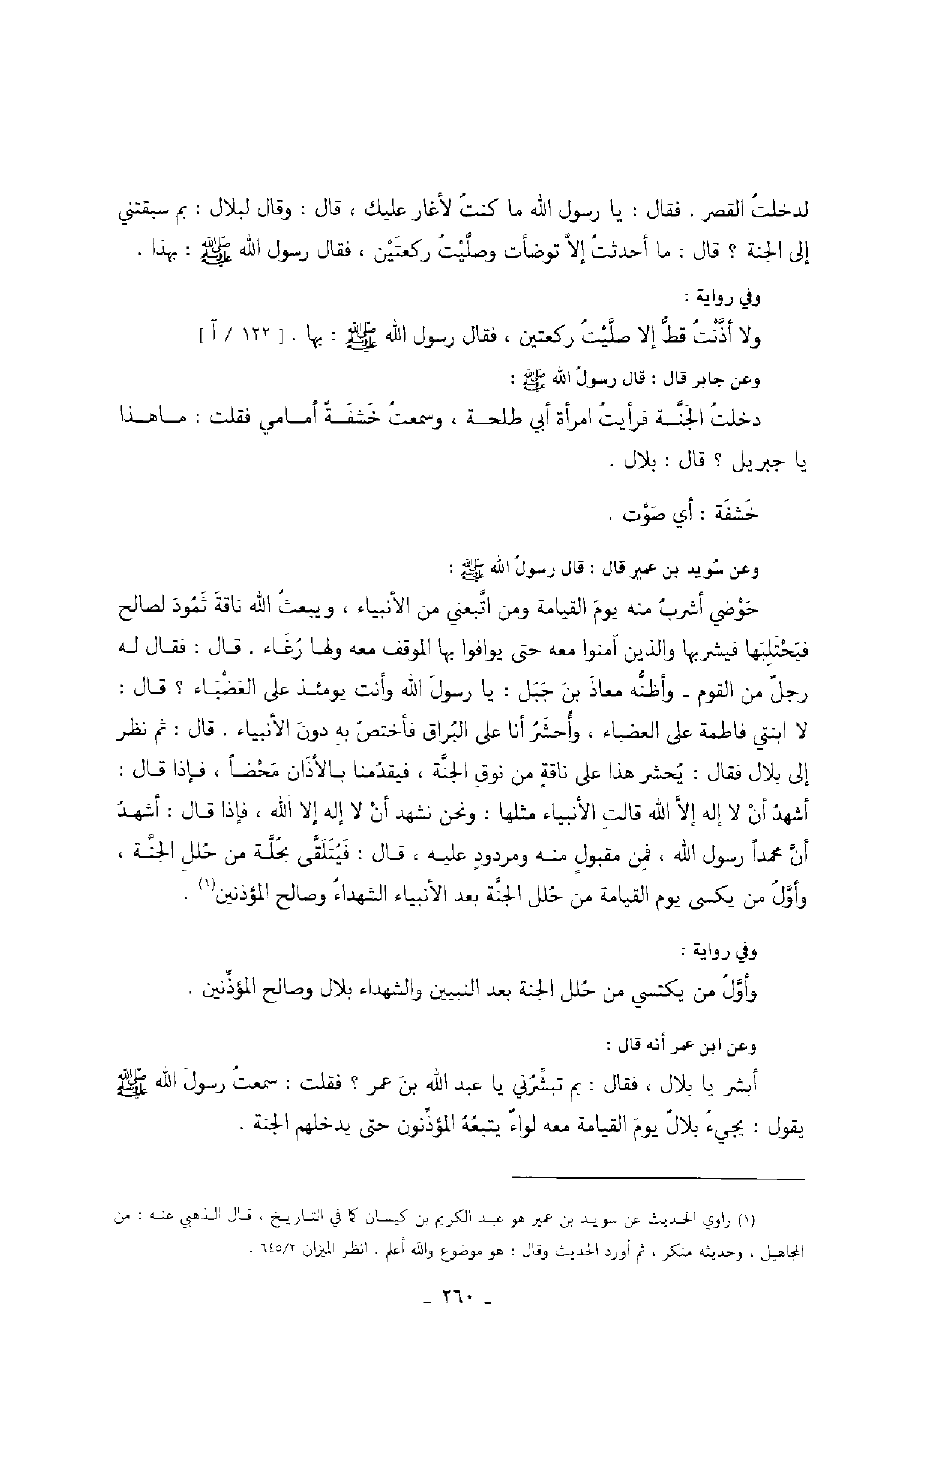 لدخلتُ القصر . فقال : يا رسول الله ما كنتُ لأغار عليك ، قال : وقال لبلال : بم سبقتني
إلى الجنة ؟ قال : ما أحدثتُ إلاّ توضأت وصلَّيْتُ ركعتَيْن ، فقال رسول الله ﷺ : بهذا .
وفي رواية :
ولا أذَّنْتُ قطُّ إلا صلَّيْتُ ركعتين ، فقال رسول الله ﷺ : بها . [ ١٢٢ / آ ]
وعن جابر قال : قال رسولُ الله ﷺ :
دخلتُ الجنَّـــة فرأيتُ امرأة أبي طلحـــة ، وسمعتُ خَشفَـــةً أمـــامي فقلت : مـــاهـــذا
يا جبريل ؟ قال : بلال .
خَشفَة : أي صَوْت .
وعن سُويد بن عمير قال : قال رسولُ الله ﷺ :
حَوْضي أشربُ منه يومَ القيامة ومن اتَّبعني من الأنبياء ، ويبعثُ الله ناقةَ ثَمُودَ لصالح
فيَحْتَلِبَها فيشربها والذين آمنوا معه حتى يوافوا بها الموقف معه ولهـا رُغَـاء . قـال : فقـال لـه
رجلٌ من القوم - وأظنُّه معاذَ بنَ جَبَل : يا رسولَ الله وأنت يومئـذ على العَضْبَـاء ؟ قـال :
لا ابنتي فاطمة على العضباء ، وأحشَرُ أنا على البُراق فأختصّ به دونَ الأنبياء . قال : ثم نظر
إلى بلال فقال : يُحشر هذا على ناقةٍ من نوق الجنَّة ، فيقدُمنا بـالأذان مَحْضـاً ، فـإذا قـال :
أشهدُ أنْ لا إله إلاّ الله قالتِ الأنبياء مثلها : ونحن نشهد أنْ لا إله إلا الله ، فإذا قـال : أشهـدُ
أنَّ محمداً رسول الله ، فمِن مقبولٍ منـه ومردودٍ عليـه ، قـال : فَيُتَلَقَّى بحُلَّـة من حُللِ الجنَّـة ،
وأوَّلُ من يكسى يوم القيامة من حُلل الجنَّة بعد الأنبياء الشهداءُ وصالح المؤذنين(١) .
وفي رواية :
وأوَّلُ من يكتسي من حُلل الجنة بعد النبيين والشهداء بلال وصالح المؤذِّنين .
وعن ابن عمر أنه قال :
أبشر يا بلال ، فقال : بم تبشِّرُني يا عبد الله بنَ عمر ؟ فقلت : سمعتُ رسولَ الله ﷺ
يقول : يجيءُ بلالٌ يومَ القيامة معه لواءٌ يتبعُهُ المؤذِّنون حتى يدخلهم الجنة .
(١) راوي الحديث عن سويد بن عمير هو عبد الكريم بن كيسان كما في التاريخ ، قـال الـذهبي عنـه : من
المجاهيل ، وحديثه منكر ، ثم أورد الحديث وقال : هو موضوع والله أعلم . انظر الميزان ٦٤٥/٢ .
ـ ٢٦٠ ـ